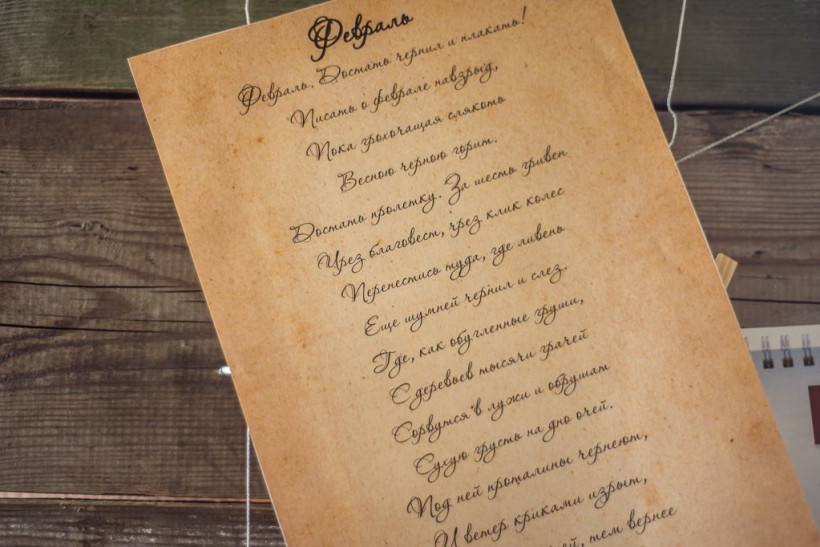 Февраль
Февраль. Достать чернил и плакать!
Писать о феврале навзрыд,
Пока грохочащая слякоть
Весною черною горит.
Достать пролетку. За шесть гривен
Чрез благовест, чрез клик колес
Перенестись туда, где ливень
Еще шумней чернил и слез.
Где, как обугленные груши,
С деревьев тысячи грачей
Сорвутся в лужи и обрушат
Сухую грусть на дно очей.
Под ней проталины чернеют,
И ветер криками изрыт,
тем вернее